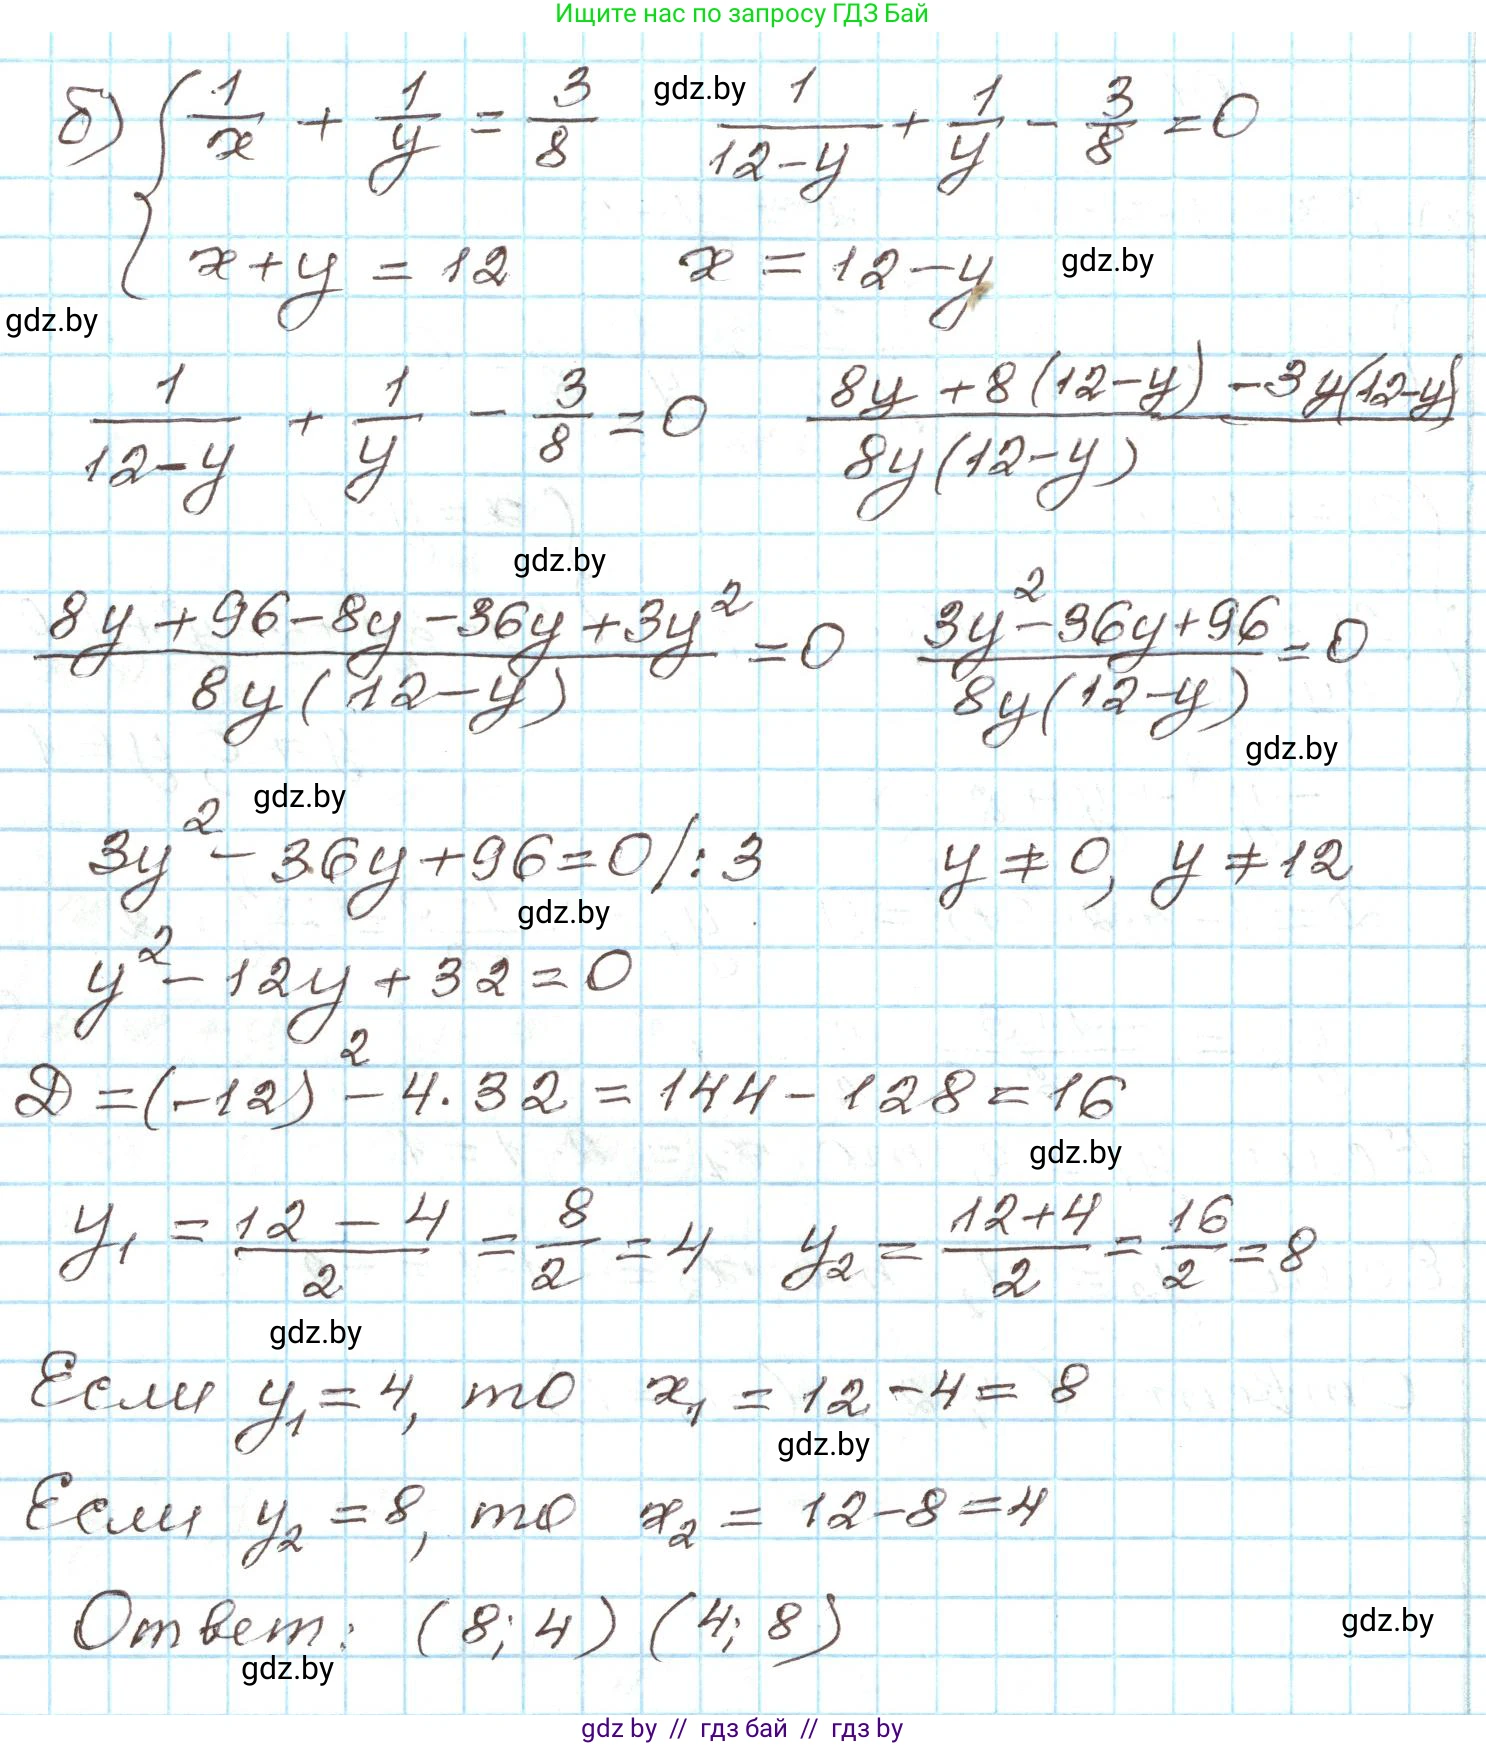 Ищите нас по запросу ГДЗ Бай
б) { 1/x + 1/y = 3/8 gdz.by 1/(12-y) + 1/y - 3/8 = 0
x+y = 12 x = 12-y gdz.by
gdz.by
1/(12-y) + 1/y - 3/8 = 0 (8y+8(12-y)-3y(12-y))/(8y(12-y))
gdz.by
(8y+96-8y-36y+3y²)/(8y(12-y)) = 0 (3y²-36y+96)/(8y(12-y)) = 0
gdz.by
gdz.by
3y²-36y+96=0/:3 y≠0, y≠12
gdz.by
y²-12y+32=0
D=(-12)²-4·32=144-128=16
gdz.by
y₁ = (12-4)/2 = 8/2 = 4 y₂ = (12+4)/2 = 16/2 = 8
gdz.by
Если y₁=4, то x₁=12-4=8
gdz.by
Если y₂=8, то x₂=12-8=4
Ответ: (8;4) (4;8) gdz.by
gdz.by
gdz by // гдз бай // гдз by